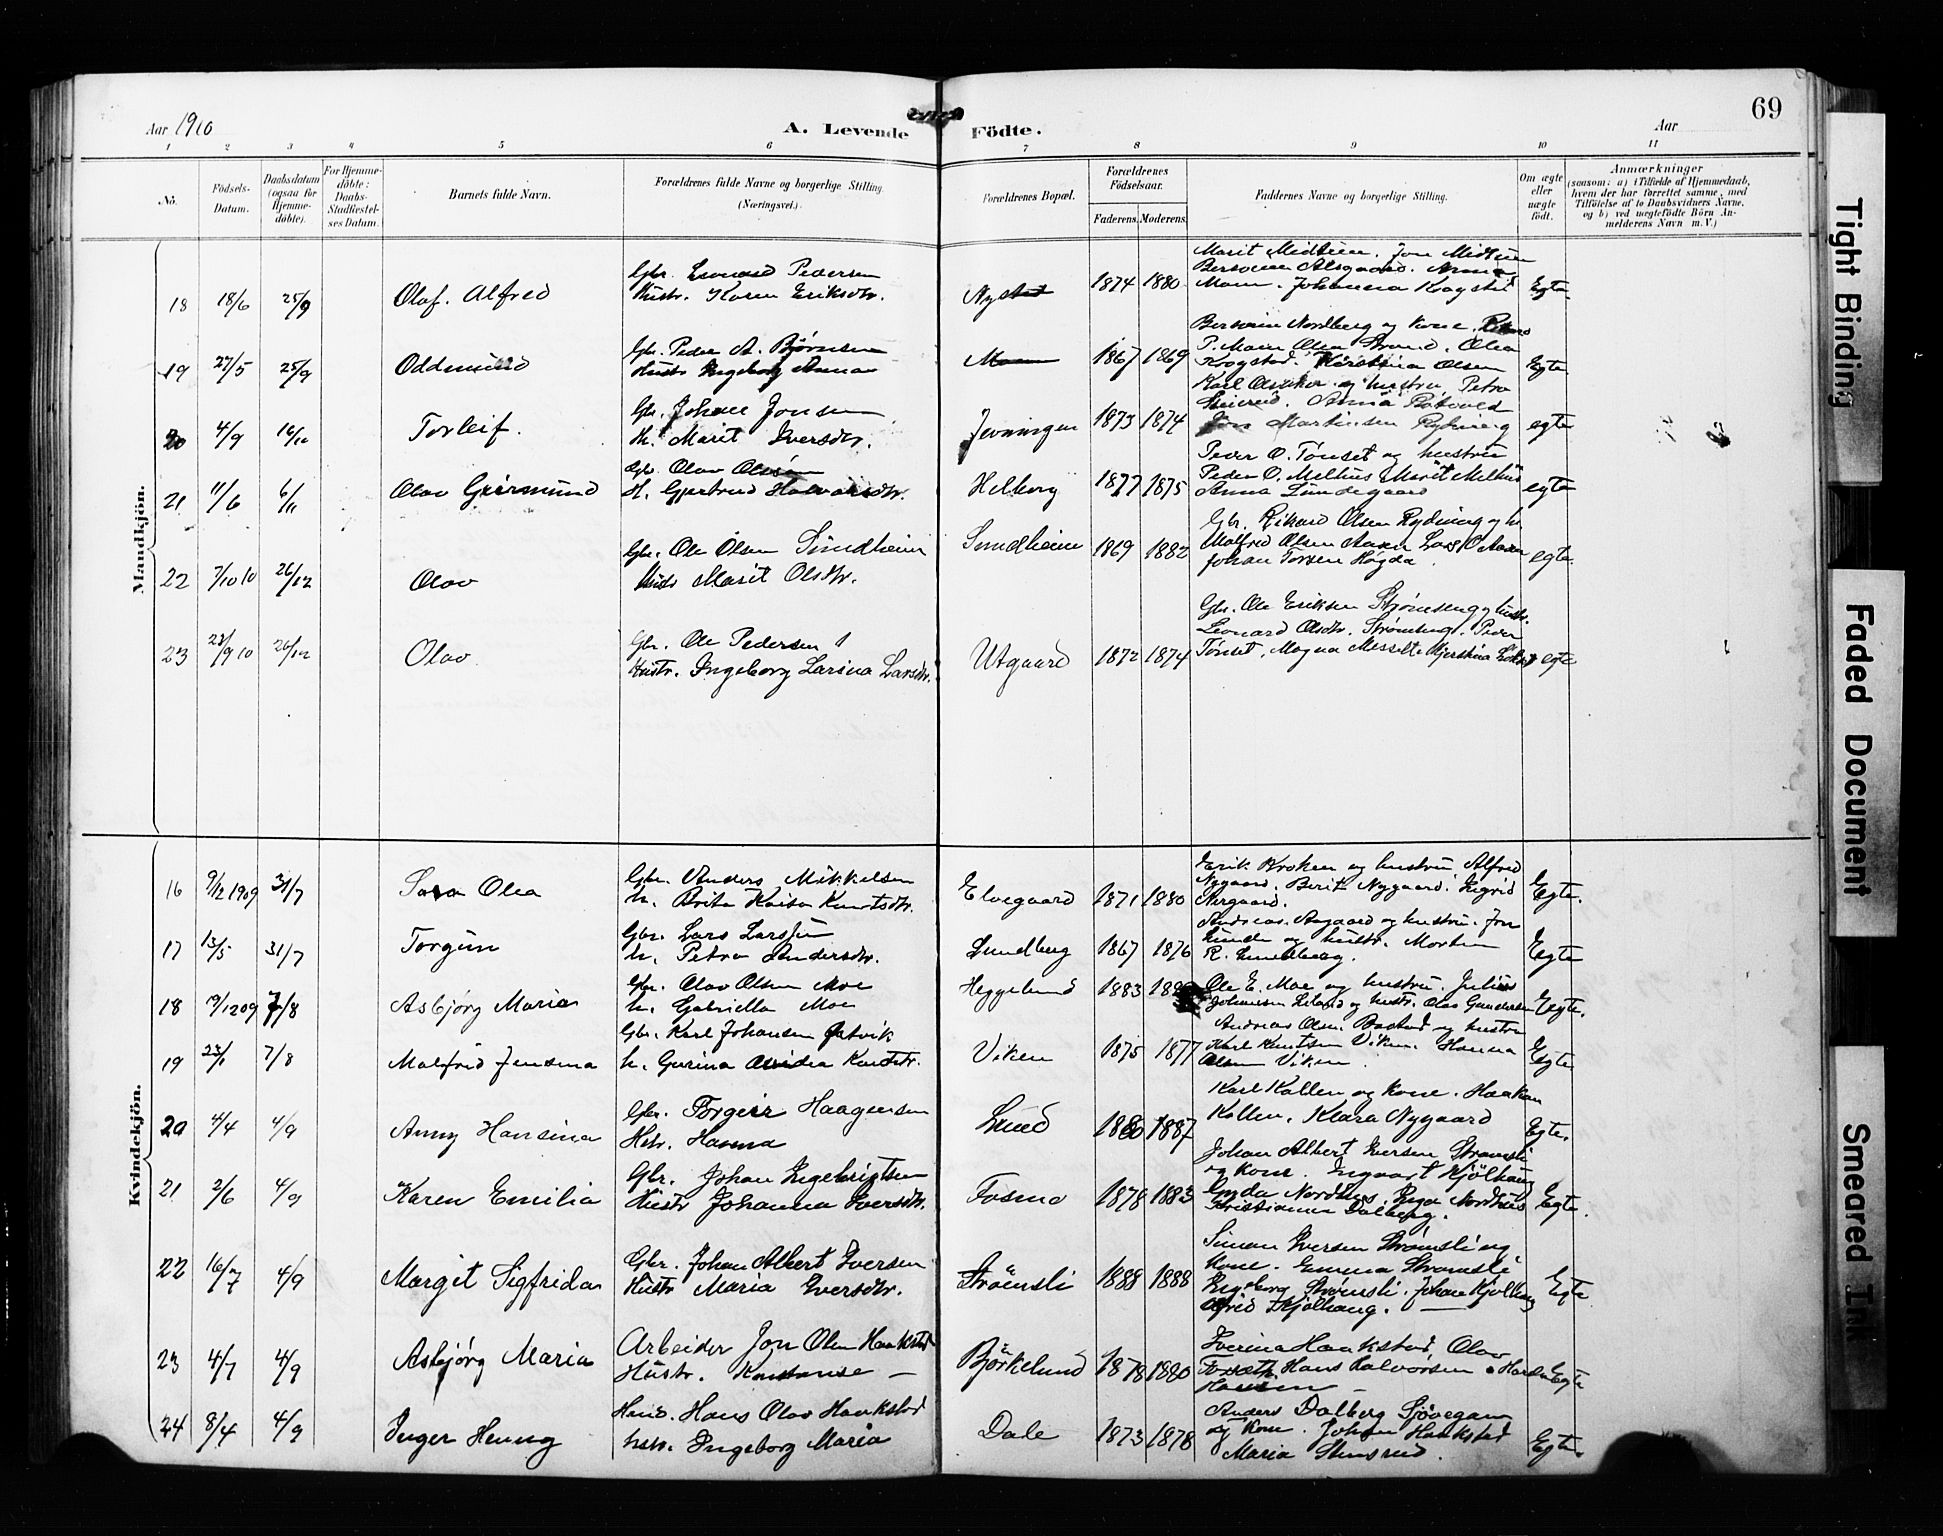 69
Aar 1910
A. Levende Födte.
Aar
1 2 3 4 5 6 7 8 9 10 11
No.
Födsels-Datum.
Daabsdatum (ogsaa for Hjemme-döbte).
For Hjemme-döbte: Daabs-Stadfæstel-ses Datum.
Barnets fulde Navn.
Forældrenes fulde Navne og borgerlige Stilling.
(Næringsvei.)
Forældrenes Bopæl.
Forældrenes Födselsaar.
Faderens. Moderens.
Faddernes Navne og borgerlige Stilling.
Om ægte eller uægte födt.
Anmærkninger
(saasom: a) i Tilfælde af Hjemmedaab, hvem der har forrettet samme, med Tilföielse af to Daabsvidners Navne, og b) ved uægtefödte Börn An-melderens Navn m. V.)
Mandkjön.
18 18/6 25/9 Olaf. Alfred
Gbr. Leonard Pedersen
Hustr. Karen Eriksdtr.
1874 1880
Marit Midtun. Jon Midtun
Johanna Kogstad
Egte
19 27/5 25/9 Oddmund
Gbr. Peder A. Björnsen
Hustr Ingeborg Anna
Moen 1867 1869
Bersvein Nordberg og Kone.
P. Moen Olsen Strand. Olea
Kogstad. Kerstina Olsen
Egte
20 4/9 16/10 Torleif.
Gbr. Johan Jonsen
H. Marit Iversdtr.
Jevningen 1873 1874
Karl Olsaker og hustru, Petra
Jon Martinsen Rydning
egte
21 11/6 6/11 Olav Geirmund
Gbr. Olav Olsen
H. Gjertrud Halvorsdtr.
Helberg 1877 1875
Peder O. Tönset og hustru
Peder O. Melhus Marit Melhus
Anna Lundegaard
egte
22 7/10 10 26/12 Olav
Gbr. Ole Olsen Sundheim
Hus Marit Olsdtr.
Sundheim 1869 1882
Gbr. Rikard Olsen Rydning og h.
Malfrid Olsen Moen Lars O Moen
Johan Torsen Högda.
egte
23 23/9 10 26/12 Olav
Gbr. Ole Pedersen
Hustr. Ingeborg Larsina Larsdtr.
Utgaard 1872 1874
Gbr. Ole Eriksen Strömseng og hustr.
Leonard Olsdtr. Strömeng. Peder
Tönset, Magna Messelt Kjerstina
egte
Kvindekjön.
16 9/12 1909 31/7 Sara Olea
Gbr. Anders Mikkelsen
h. Brita Kaisa Knutsdtr.
Elvegaard 1871 1880
Erik Broken og hustru Alfred
Nygaard. Berit Nygaard. Sigrid
Nergaard.
Egte.
17 13/5 31/7 Torgun
Gbr. Lars Larssen
h. Petra Andersdtr.
Lundberg 1867 1876
Andreas. Aagaard og hustru. Jon
Lunde og hustr. Morten
R. Lundberg.
Egte
18 9/12 09 7/8 Asbjörg Maria
Gbr. Olav Olsen Moe
h. Gabriella Moe
Heggelund 1883
Ole E. Moe og hustru. Julius
Johansen Leland og hustr. Olav Gundersen
Egte.
19 23/1 7/8 Malfrid Jensina
Gbr. Karl Johansen
h. Gurina Knutsdtr.
Viken 1875 1877
Andreas Olsen Bostad og hustru
Karl Knutsen Viken. Hanna
Olsen Viken
Egte
20 4/4 4/9 Anny Hansina
Gbr. Torgeir Haagensen
Hstr. Hanna
Lund 1880 1887
Karl Kollen og kone. Haakon
Kollen. Klara Nygaard
Egte.
21 2/6 4/9 Karen Emilia
Gbr. Johan Ingebrigtsen
Hustr Johanna Iversdtr.
Fosmo 1878 1883
Johan Albert Iversen Strømsli
og kone. Ingvart Kjölhaug
Gyda Nordhus. Inga Nordhus
Kristianna Dalberg.
Egte.
22 16/7 4/9 Margit Sigfrida
Gbr. Johan Albert Iversen
Hustr Maria Iversdtr.
Strömsli 1888 1888
Simon Iversen Strømsli og
kone. Emma Strømsli
Ingeborg Strömsli. Johan Kjölhaug
Alfrid Kjölhaug.
Egte
23 4/7 4/9 Asbjörg Maria
Arbeider Jon Olsen Haakstad
Hustr. Konstanse —
Björkelund 1878 1880
Iverina Haakstad. Olav
Hans Halvorsen
Hansen —
Egte
24 8/4 4/9 Inger Henny
Hand. Hans Olav Haakstad
hstr. Ingeborg Maria
Dale 1873 1878
Anders Dalberg Sjövegan
og kone. Johan Haakstad
Maria Stensrud.
Egte.
Tight Binding
Faded Document
Smeared Ink